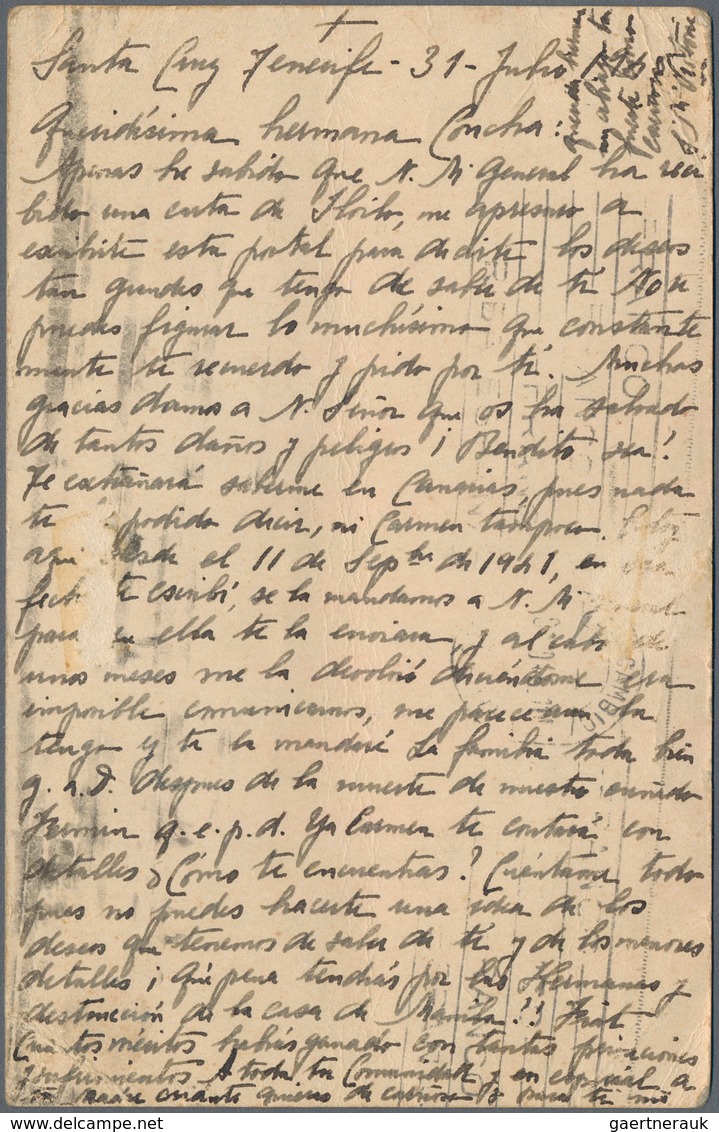 Santa Cruz Tenerife - 31 - Julio
Queridísima hermana Concha:
Apenas he sabido que N. M. General ha reci
bido una carta de Iloilo, me apresuro a
escribirte esta postal para decirte los deseos
tan grandes que tengo de saber de ti No te
puedes figurar lo muchísimo que constante
mente te recuerdo y pido por tí. Muchas
gracias damos a N. Señor que os ha salvado
de tantos daños y peligros ¡Bendito sea!
Te extrañará saberme en Canarias, pues nada
te podido decir, ni Carmen tampoco. Estoy
aquí desde el 11 de Sepbre de 1941, en
fecha te escribí, se la mandamos a N. M.
para ella te la enviara, y al cabo de
unos meses me la devolvió diciéndome era
imposible comunicarnos, me parece aun la
tengo y te la mandaré La familia toda bien
g. a. D. despues de la muerte de nuestro cuñado
Fermin q. e. p. d. Ya Carmen te contará con
detalles ¿Cómo te encuentras? Cuéntame todo
pues no puedes hacerte una idea de los
deseos que tenemos de saber de tí y de los menores
detalles ¡qué pena tendrás por las Hermanas y
destrucción de la casa de Manila!! Fiat
Cuantos méritos habrás ganado con tantas privaciones
y sufrimientos A toda tu Comunidad y en especial a
tu Madre cuanto quieras de cariñoso y para ti mi
querida hermana
un abrazo
fuerte
cariñoso
GMBH
gaertnerauk